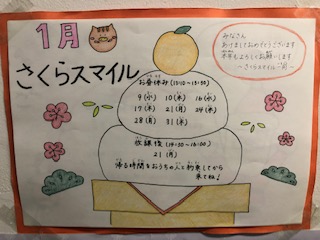 1月
さくらスマイル
みなさん
あけましておめでとうございます
本年もよろしくお願いします
〜さくらスマイル 一同〜
お昼休み (13:10〜13:30)
9(水) 10(木) 16(水)
17(木) 21(月) 24(木)
28(月) 31(木)
放課後 (14:30〜16:00)
21(月)
帰る時間をおうちの人と約束してから
来てね!